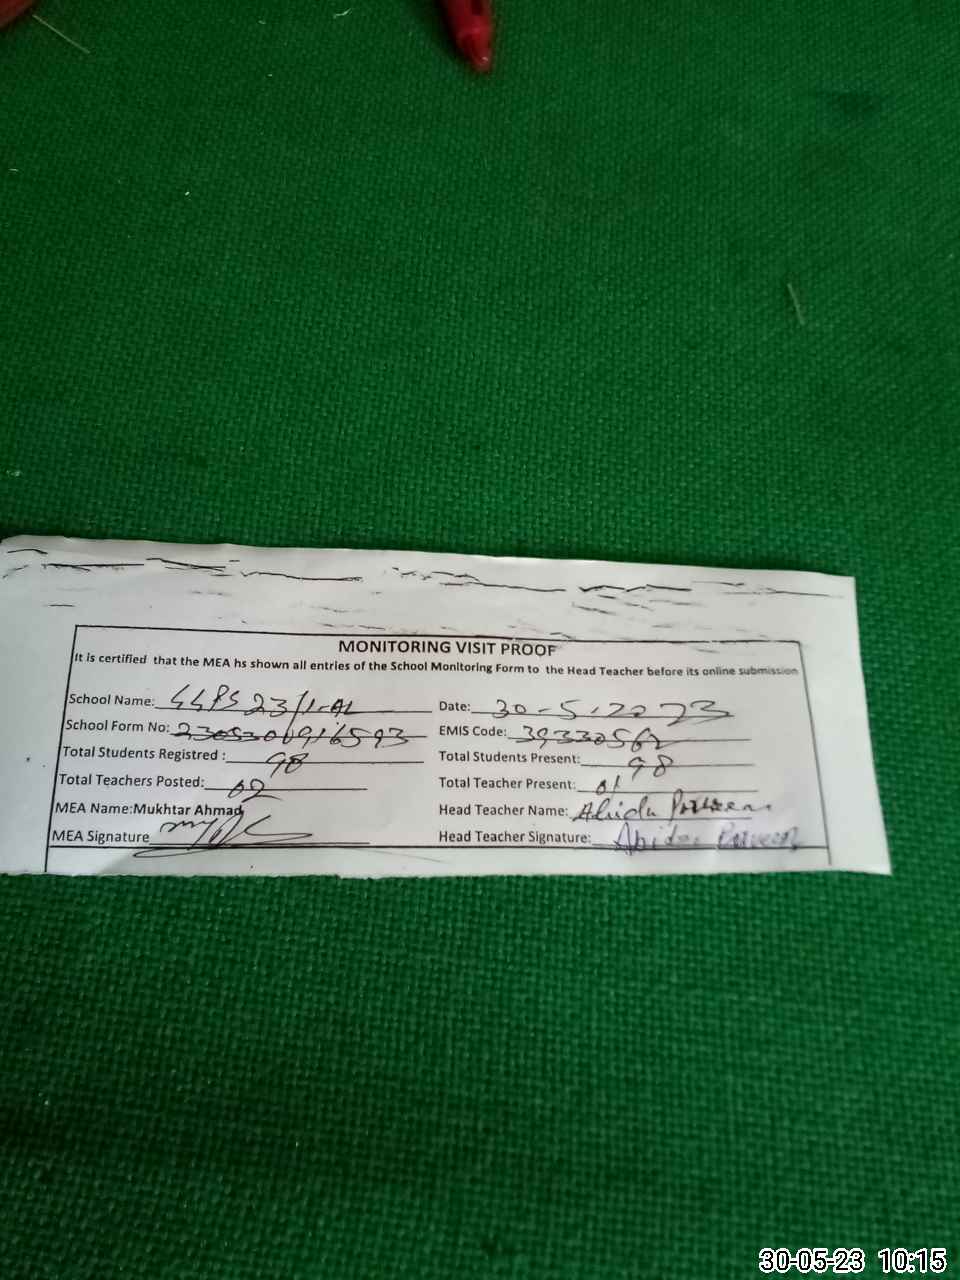 MONITORING VISIT PROOF
It is certified that the MEA hs shown all entries of the School Monitoring Form to the Head Teacher before its online submission
School Name: GGPS 23/1-AL Date: 30-5-2023
School Form No: EMIS Code: 39330562
Total Students Registered : 98 Total Students Present: 98
Total Teachers Posted: 02 Total Teacher Present: 01
MEA Name:Mukhtar Ahmad Head Teacher Name: Abida Parveen
MEA Signature Head Teacher Signature: Abida Parveen
30-05-23 10:15